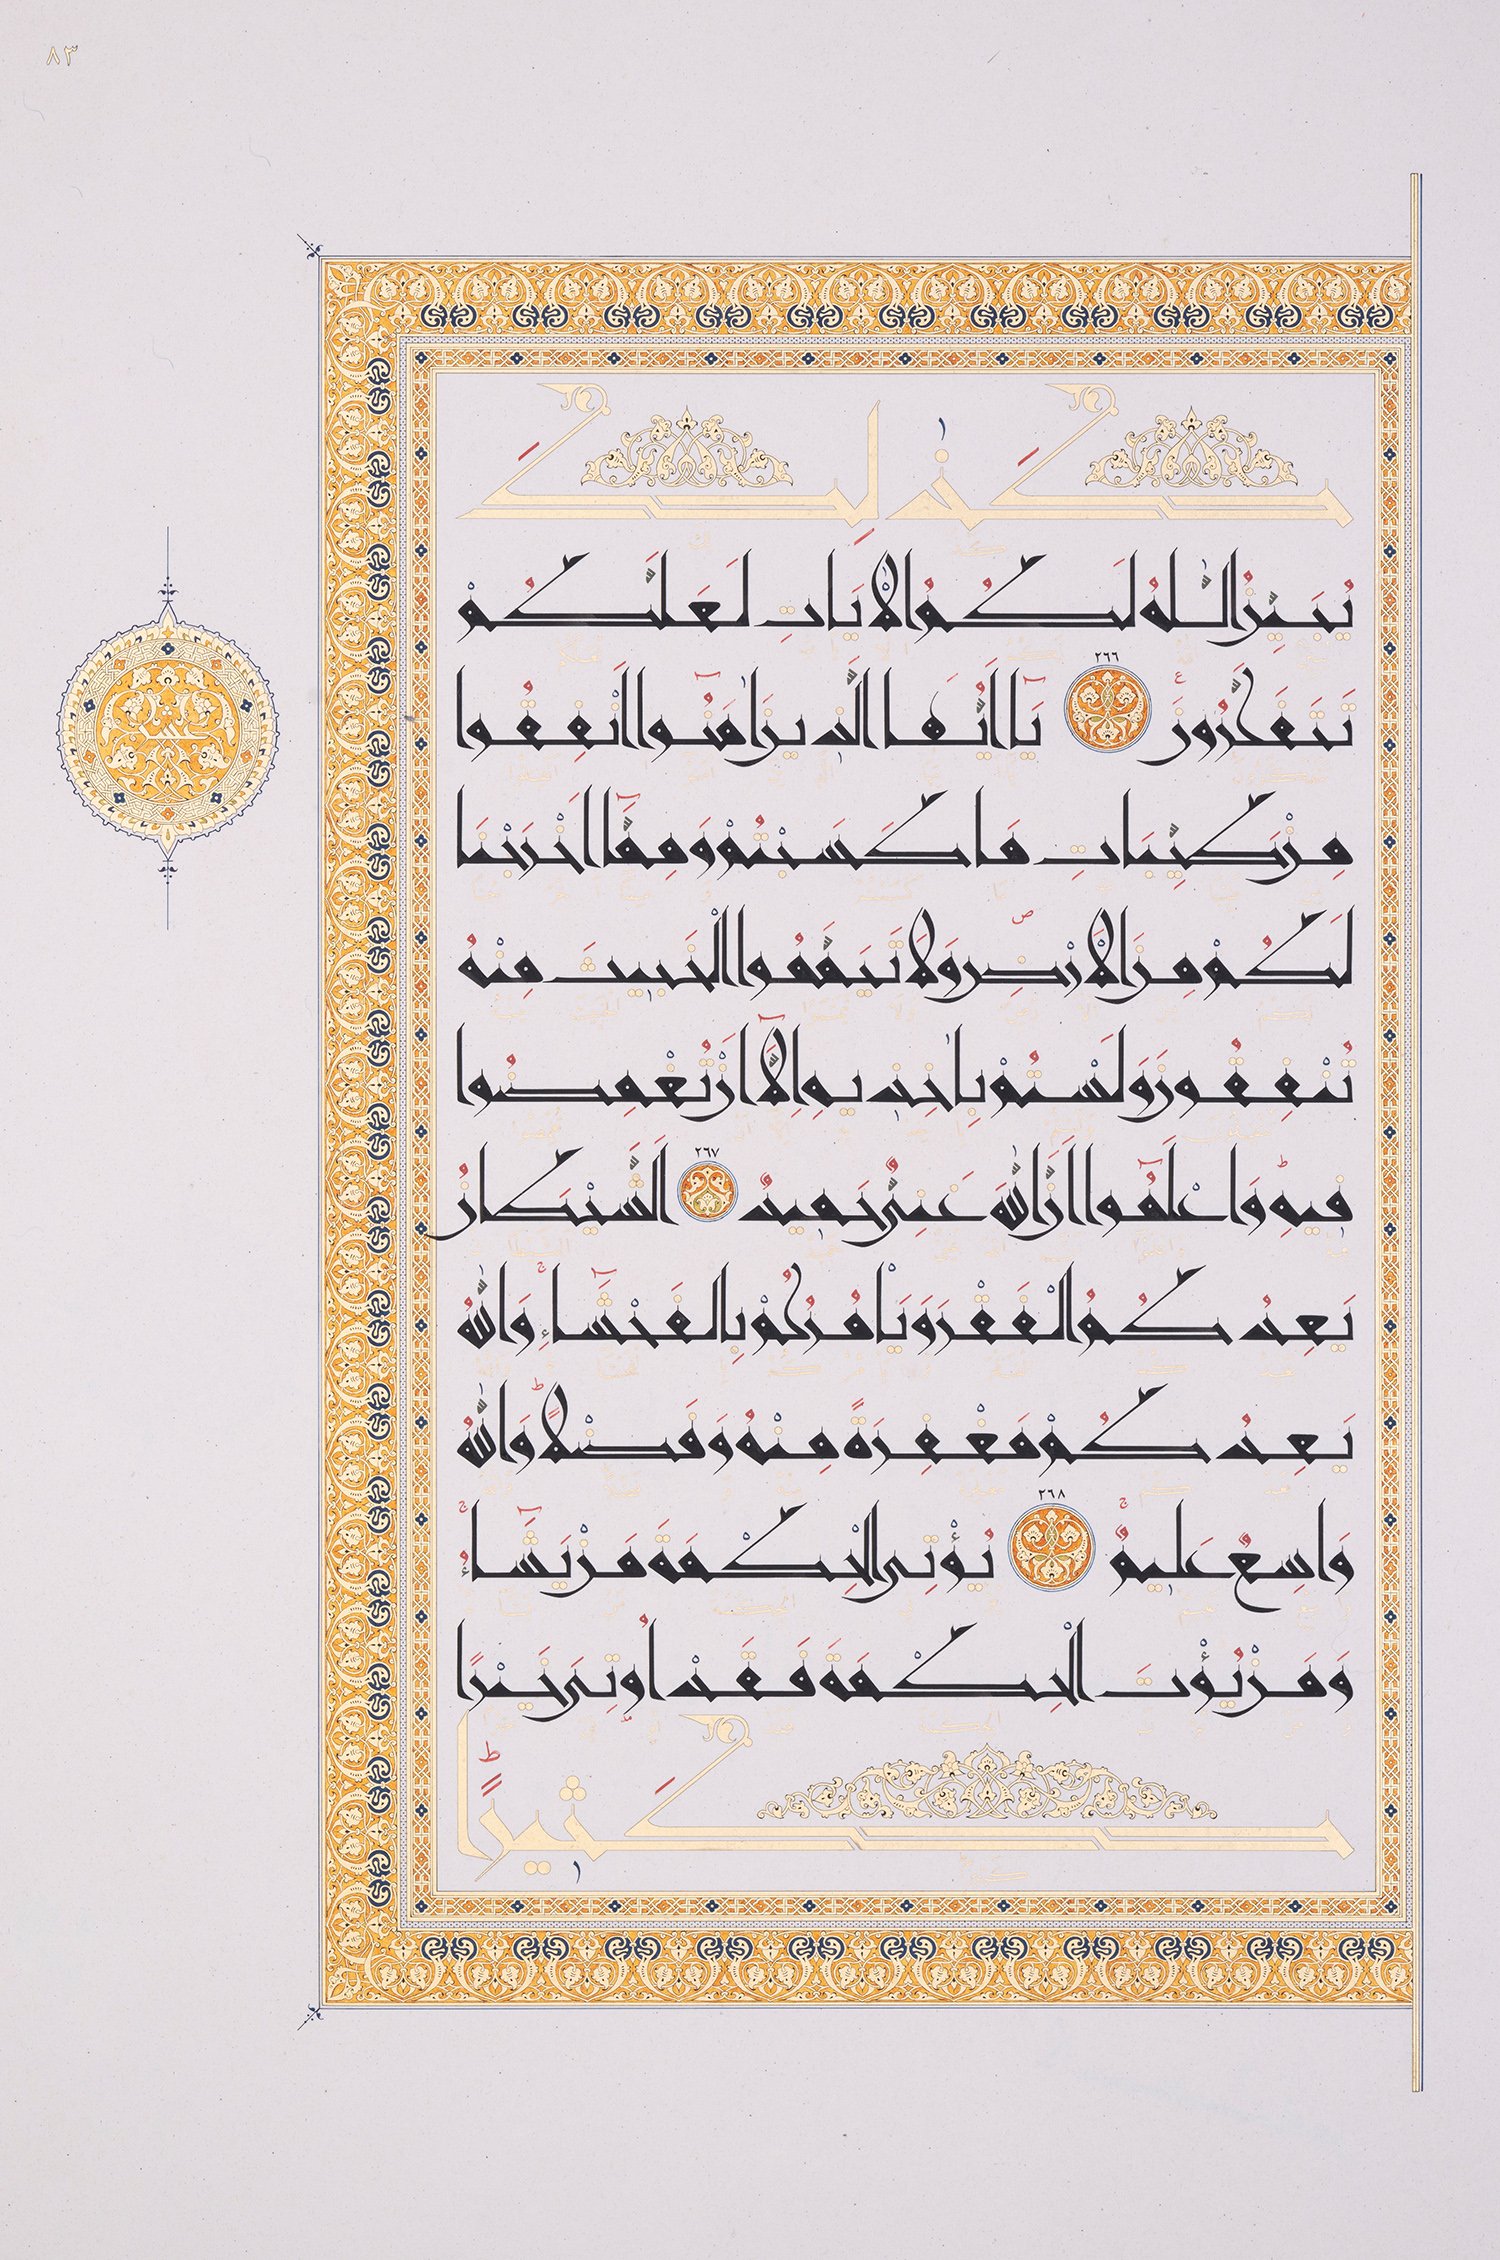 ٨٣
كَذٰلِكَ
يُبَيِّنُ اللّٰهُ لَكُمُ الْاٰيَاتِ لَعَلَّكُمْ
تَتَفَكَّرُونَ ٢٦٦ يَٓا اَيُّهَا الَّذ۪ينَ اٰمَنُٓوا اَنْفِقُوا
مِنْ طَيِّبَاتِ مَا كَسَبْتُمْ وَمِمَّٓا اَخْرَجْنَا
لَكُمْ مِنَ الْاَرْضِ وَلَا تَيَمَّمُوا الْخَب۪يثَ مِنْهُ
تُنْفِقُونَ وَلَسْتُمْ بِاٰخِذ۪يهِ اِلَّٓا اَنْ تُغْمِضُوا
ف۪يهِ وَاعْلَمُٓوا اَنَّ اللّٰهَ غَنِيٌّ حَم۪يدٌ ٢٦٧ اَلشَّيْطَانُ
يَعِدُكُمُ الْفَقْرَ وَيَأْمُرُكُمْ بِالْفَحْشَٓاءِ وَاللّٰهُ
يَعِدُكُمْ مَغْفِرَةً مِنْهُ وَفَضْلًا وَاللّٰهُ
وَاسِعٌ عَل۪يمٌ ٢٦٨ يُؤْتِي الْحِكْمَةَ مَنْ يَشَٓاءُ
وَمَنْ يُؤْتَ الْحِكْمَةَ فَقَدْ اُو۫تِيَ خَيْرًا
كَث۪يرًا